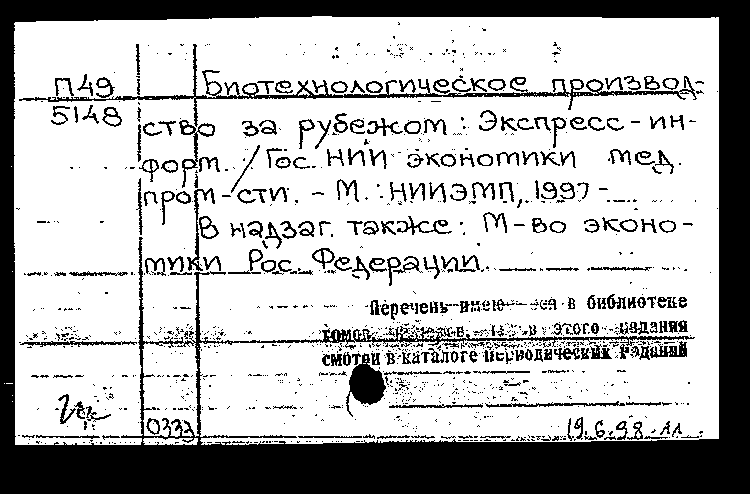 П49 Биотехнологическое производ-
5148 ство за рубежом : Экспресс-ин-
форм. / Гос. НИИ экономики мед.
пром-сти. - М. : НИИЭМП, 1997 -
В надзаг. также: М-во эконо-
мики Рос. Федерации.
Перечень имею в библиотеке
томов, в этого издания
смотри в каталоге периодических изданий
0333 19.6.98